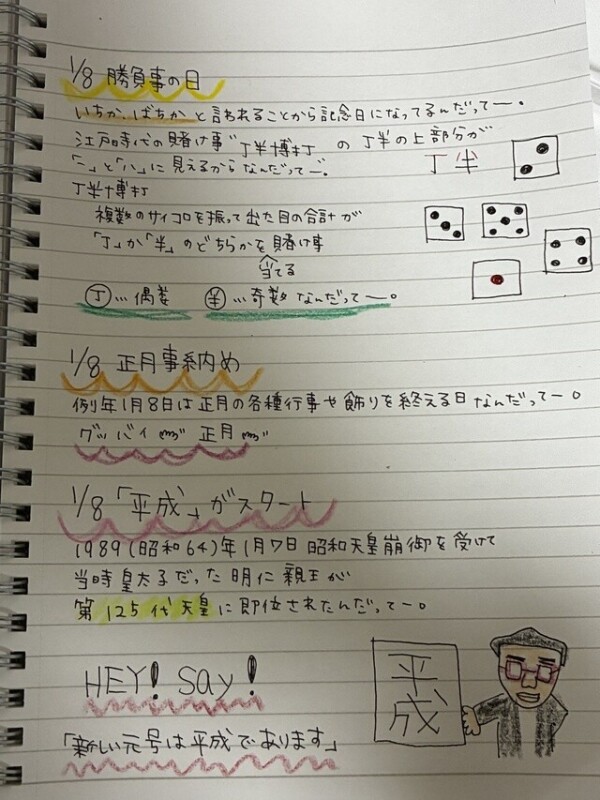 1/8 勝負事の日
いちか、ばちかと言われることから記念日になってるんだってー。
江戸時代の賭け事"丁半博打の丁半の上部分が
「一」と「八」に見えるからなんだってー。
丁半
丁半博打
複数のサイコロを振って出た目の合計が
「丁」か「半」のどちらかを賭け事
当てる
丁…偶数 半…奇数なんだってー。
1/8 正月事納め
例年1月8日は正月の各種行事や飾りを終える日なんだってー。
グッバイ 正月
1/8「平成」がスタート
1989(昭和64)年1月7日昭和天皇崩御を受けて
当時皇太子だった明仁親王が
第125代天皇に即位されたんだってー。
HEY! Say!
平成
「新しい元号は平成であります」